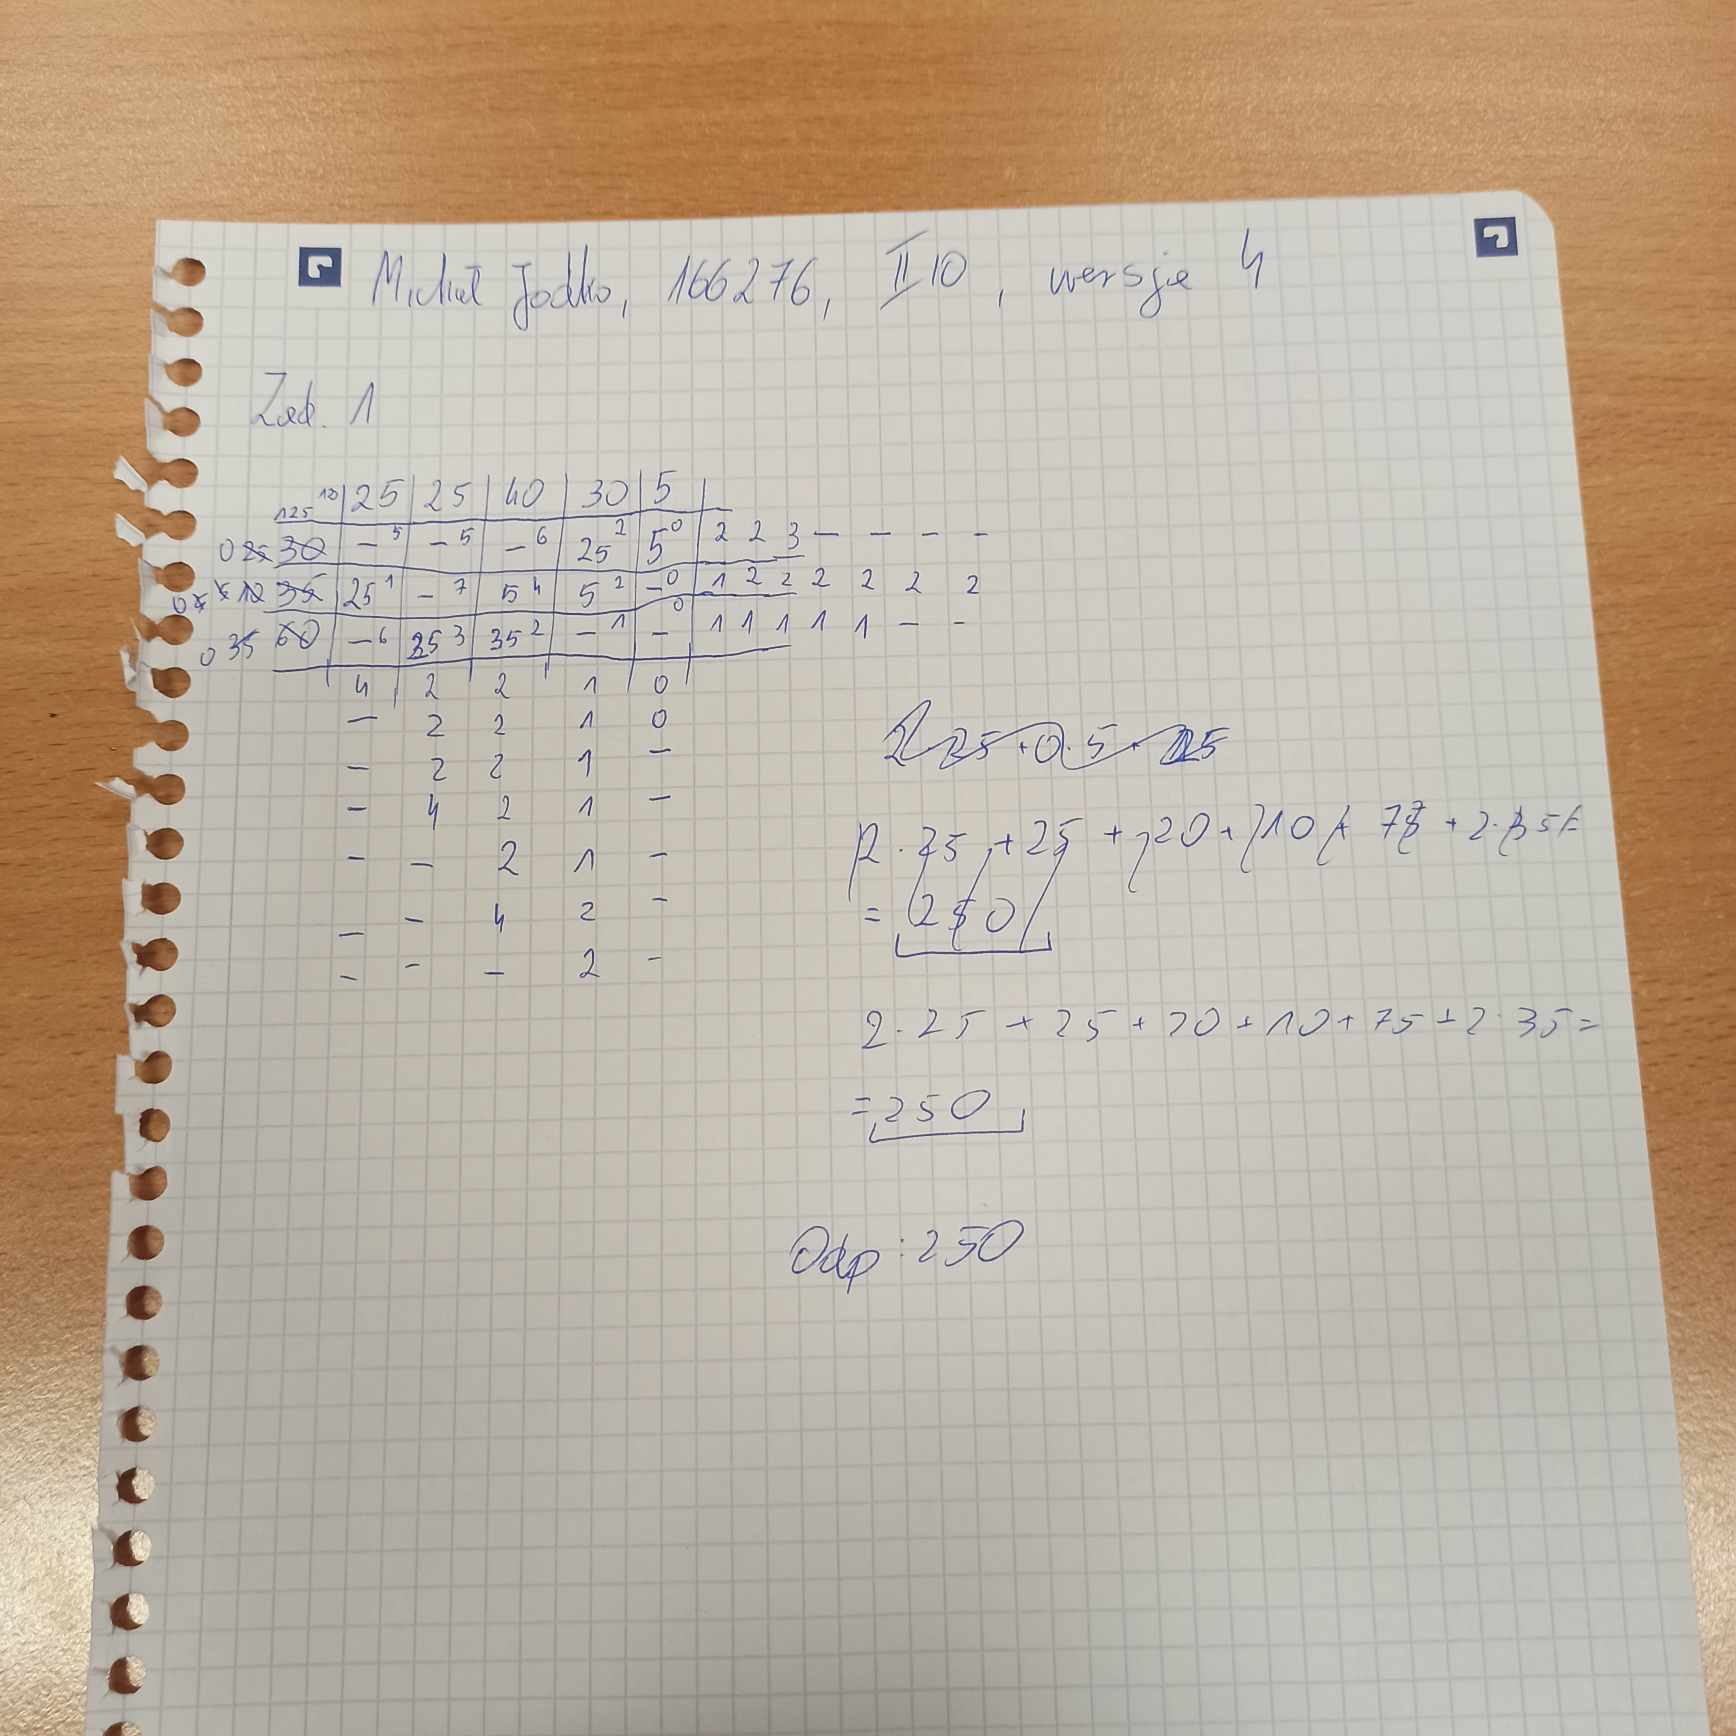 Michał Jodko, 166276, II 10, wersja 4
Zad. 1
125 120 25 25 40 30 5
0 25 30 - 5 - 5 - 6 25 2 5 0 2 2 3 - - - -
0 5 10 35 25 1 - 7 5 4 5 2 - 0 1 2 2 2 2 2 2
0 35 60 - 6 25 3 35 2 - 1 - 0 1 1 1 1 1 - -
4 2 2 1 0
- 2 2 1 0
- 2 2 1 -
- 4 2 1 -
- - 2 1 -
- - 4 2 -
- - - 2 -
2 25 + 0 . 5 +
2 . 25 + 25 + 20 + 10 + 75 + 2 . 35 =
= 250
2 . 25 + 25 + 20 + 10 + 75 + 2 . 35 =
= 250
Odp : 250